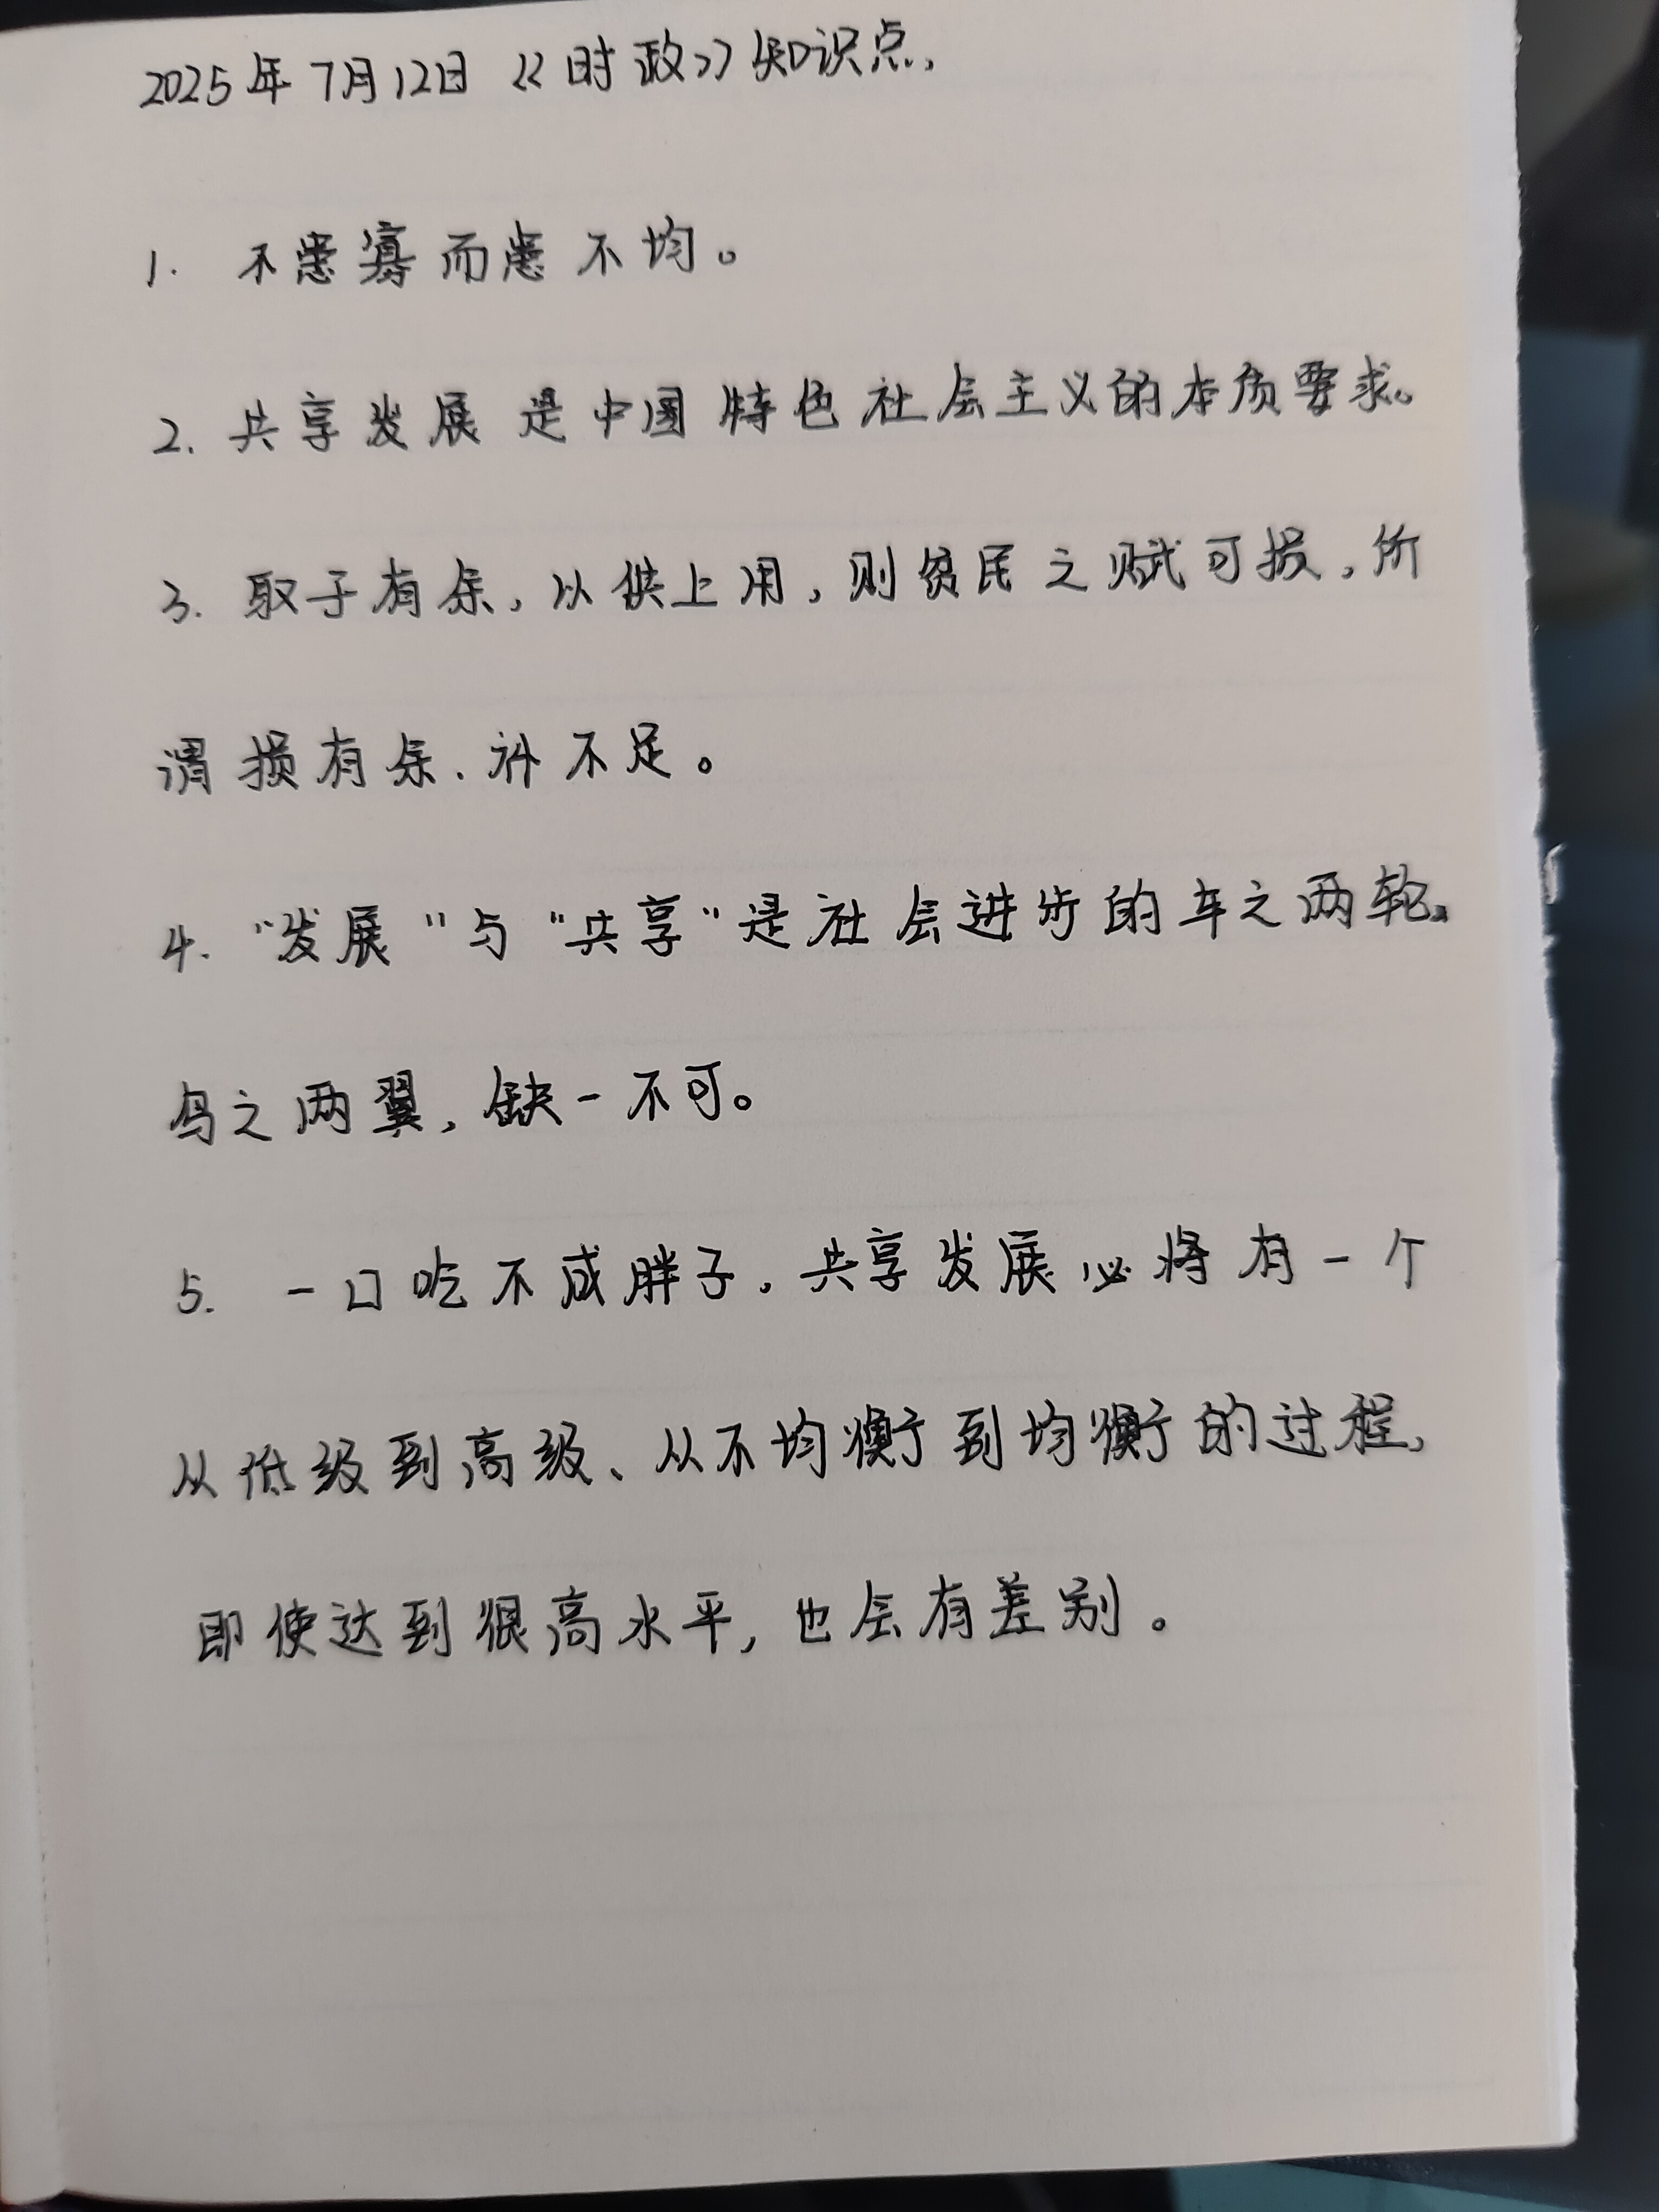 2025年7月12日《时政》知识点.
1. 不患寡而患不均。
2. 共享发展是中国特色社会主义的本质要求。
3. 取于有余,以供上用,则贫民之赋可损,所
谓损有余、补不足。
4. "发展"与"共享"是社会进步的车之两轮、
鸟之两翼,缺一不可。
5. 一口吃不成胖子,共享发展必将有一个
从低级到高级、从不均衡到均衡的过程,
即使达到很高水平,也会有差别。